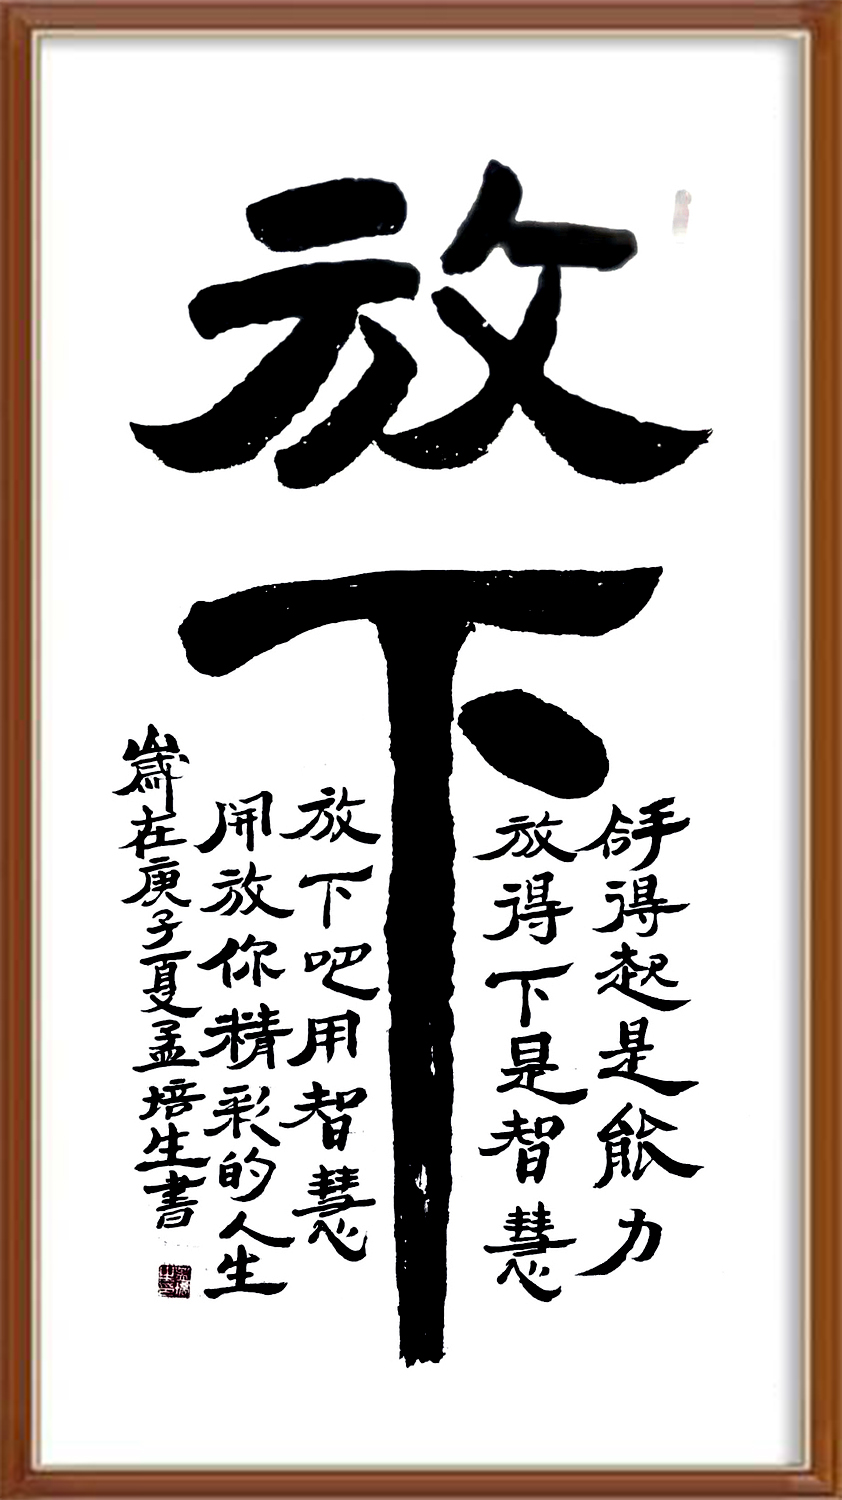 放下
拿得起是能力
放得下是智慧
放下吧用智慧
開放你精彩的人生
歲在庚子夏孟培生書